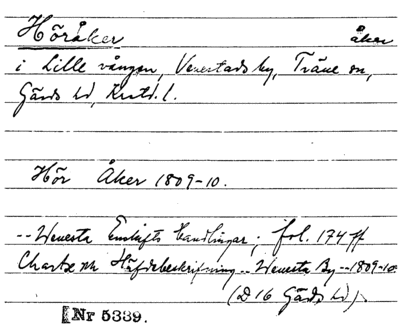 Höråker åker
i Lille vången, Venestads by, Träne sn,
Gärds hd, Krstd. l.
Hör Åker 1809-10.
--Wenesta Enskifts Handlingar; fol. 174 ff
Charta nh Häfdebeskrifning -- Wenesta By -- 1809-10.
(D 16 Gärds hd)
Nr 5339.